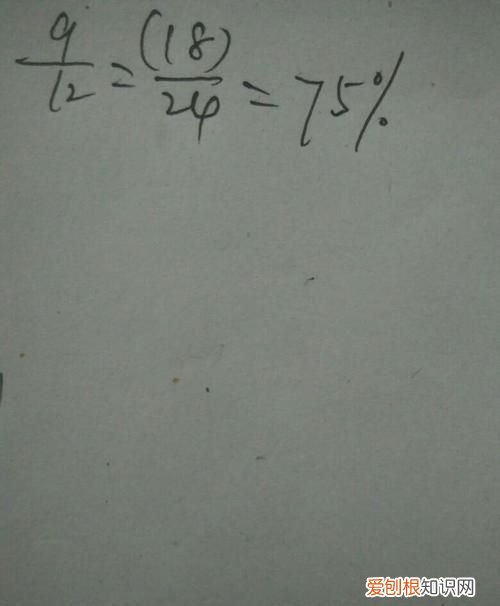 9/12 = (18)/24 = 75%
爱刨根知识网